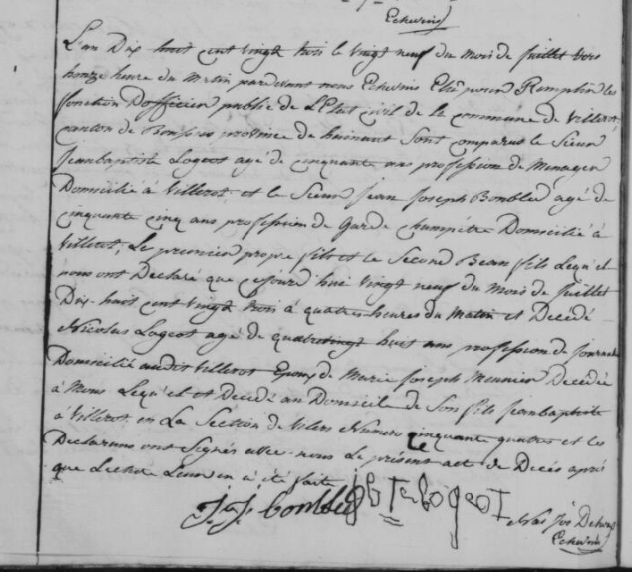 Echevin
L'an Dix huit cent vingt trois le vingt neuf du mois de Juillet vers
honze heure du Matin pardevant nous Echevins Elû pour Remplire les
fonction D'officier public de L'Etat Civil de la commune de Villerot,
canton de province de hainaut Sont comparut le Sieur
Jeanbaptiste Logeot agé de cinquante ans profession de Menager
Domicilié à Villerot et le Sieur Jean Joseph Bombled agé de
cinquante cinq ans profession de Garde champêtre Domicilié à
Villerot, Le premier propre fils et le Second Beau fils Lequel
nous ont Declaré que cejourd'hui vingt neuf du Mois de Juillet
Dix-huit cent vingt trois à quatres heures du Matin et Decédé
Nicolas Logeot agé de quatrevingt huit ans profession de Journal
Domicilié audit Villerot Epoux de Marie Joseph Meunier Decedée
à Mons Lequel et Decédé au Domicile de Son fils Jeanbaptiste
à Villerot en La Section de Numero cinquante quatre et les
Declarans ont Signés avec nous Le présent act de Decès après
que Lecture Leur en a été faite
J: J: bomblé jb Te Logeot
Nas Jos
Echevin